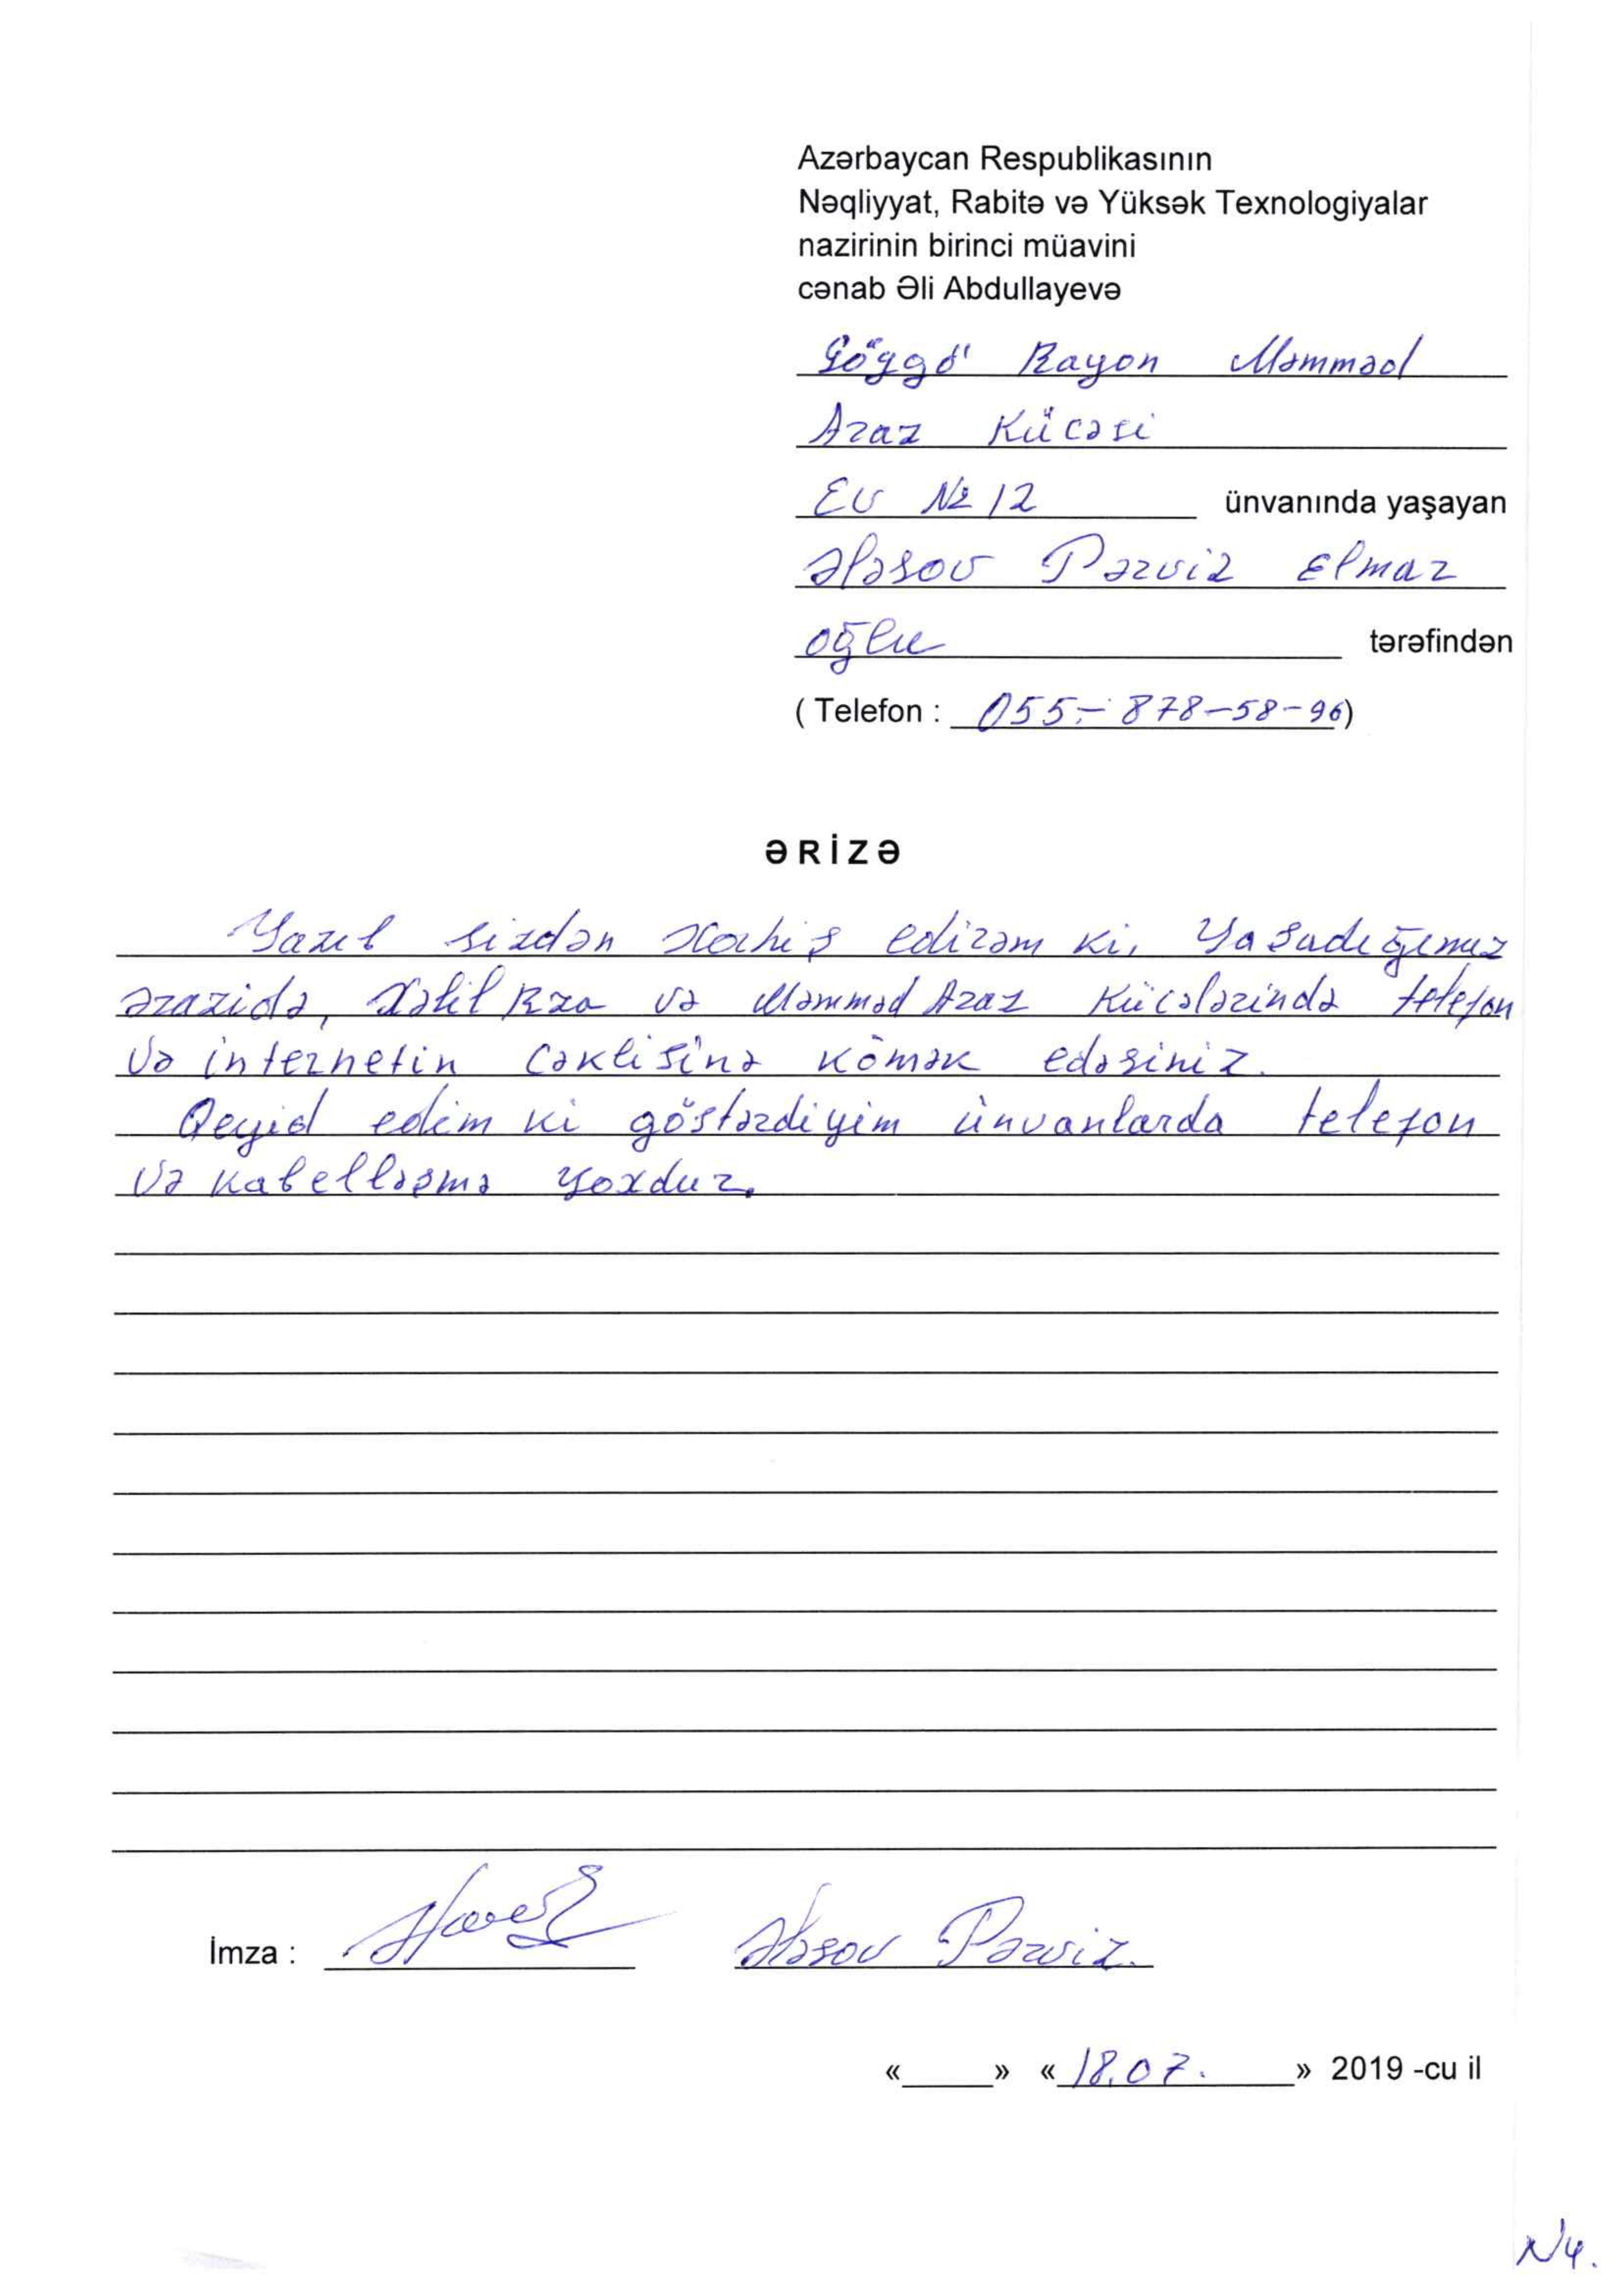 Azərbaycan Respublikasının
Nəqliyyat, Rabitə və Yüksək Texnologiyalar
nazirinin birinci müavini
cənab Əli Abdullayevə
Göygö' Rayon Məmməd
Araz Küçəsi
Ev № 12 ünvanında yaşayan
Ələsov Pərviz Elmar
oğlu tərəfindən
( Telefon : 055-878-58-96)
ƏRİZƏ
Yazıb sizdən xahiş edirəm ki, Yaşadığımız
ərazidə, Xəlil Rza və Məmməd Araz Küçələrində telefon
və internetin cəklisinə kömək edəsiniz.
Qeyid edim ki göstərdiyim ünvanlarda telefon
və kabelləşmə yoxdur.
İmza : Ələsov Pərviz.
«_____» «18.07.» 2019 -cu il
N4.